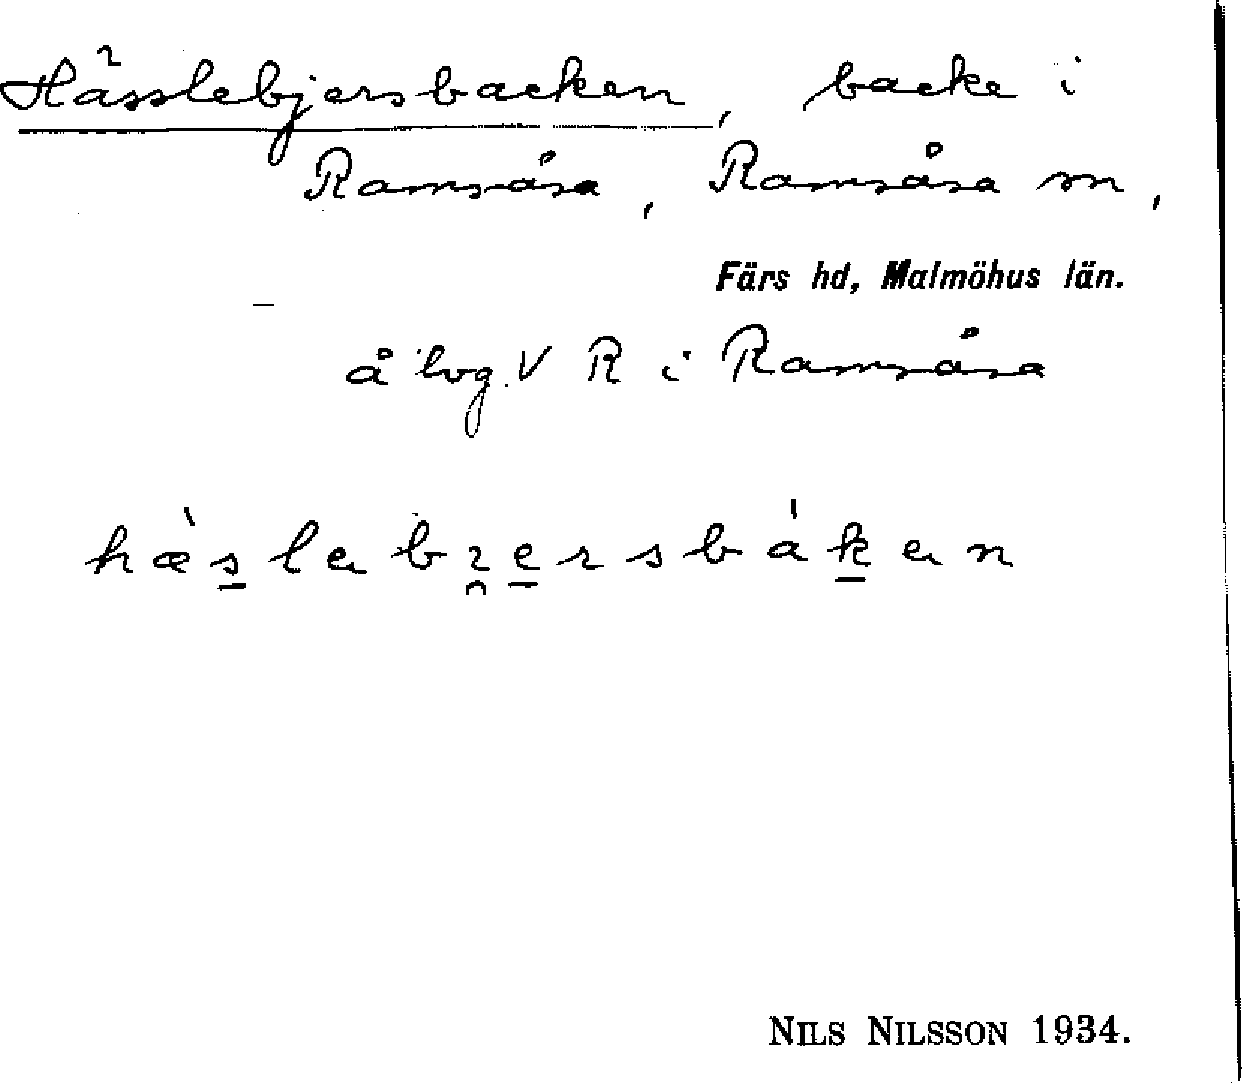 Hässlebjersbacken, backe i
Ramsåsa, Ramsåsa sn,
Färs hd, Malmöhus län.
å lvg. V R i Ramsåsa
hæ̀slebɪ̯ersbáken
NILS NILSSON 1934.